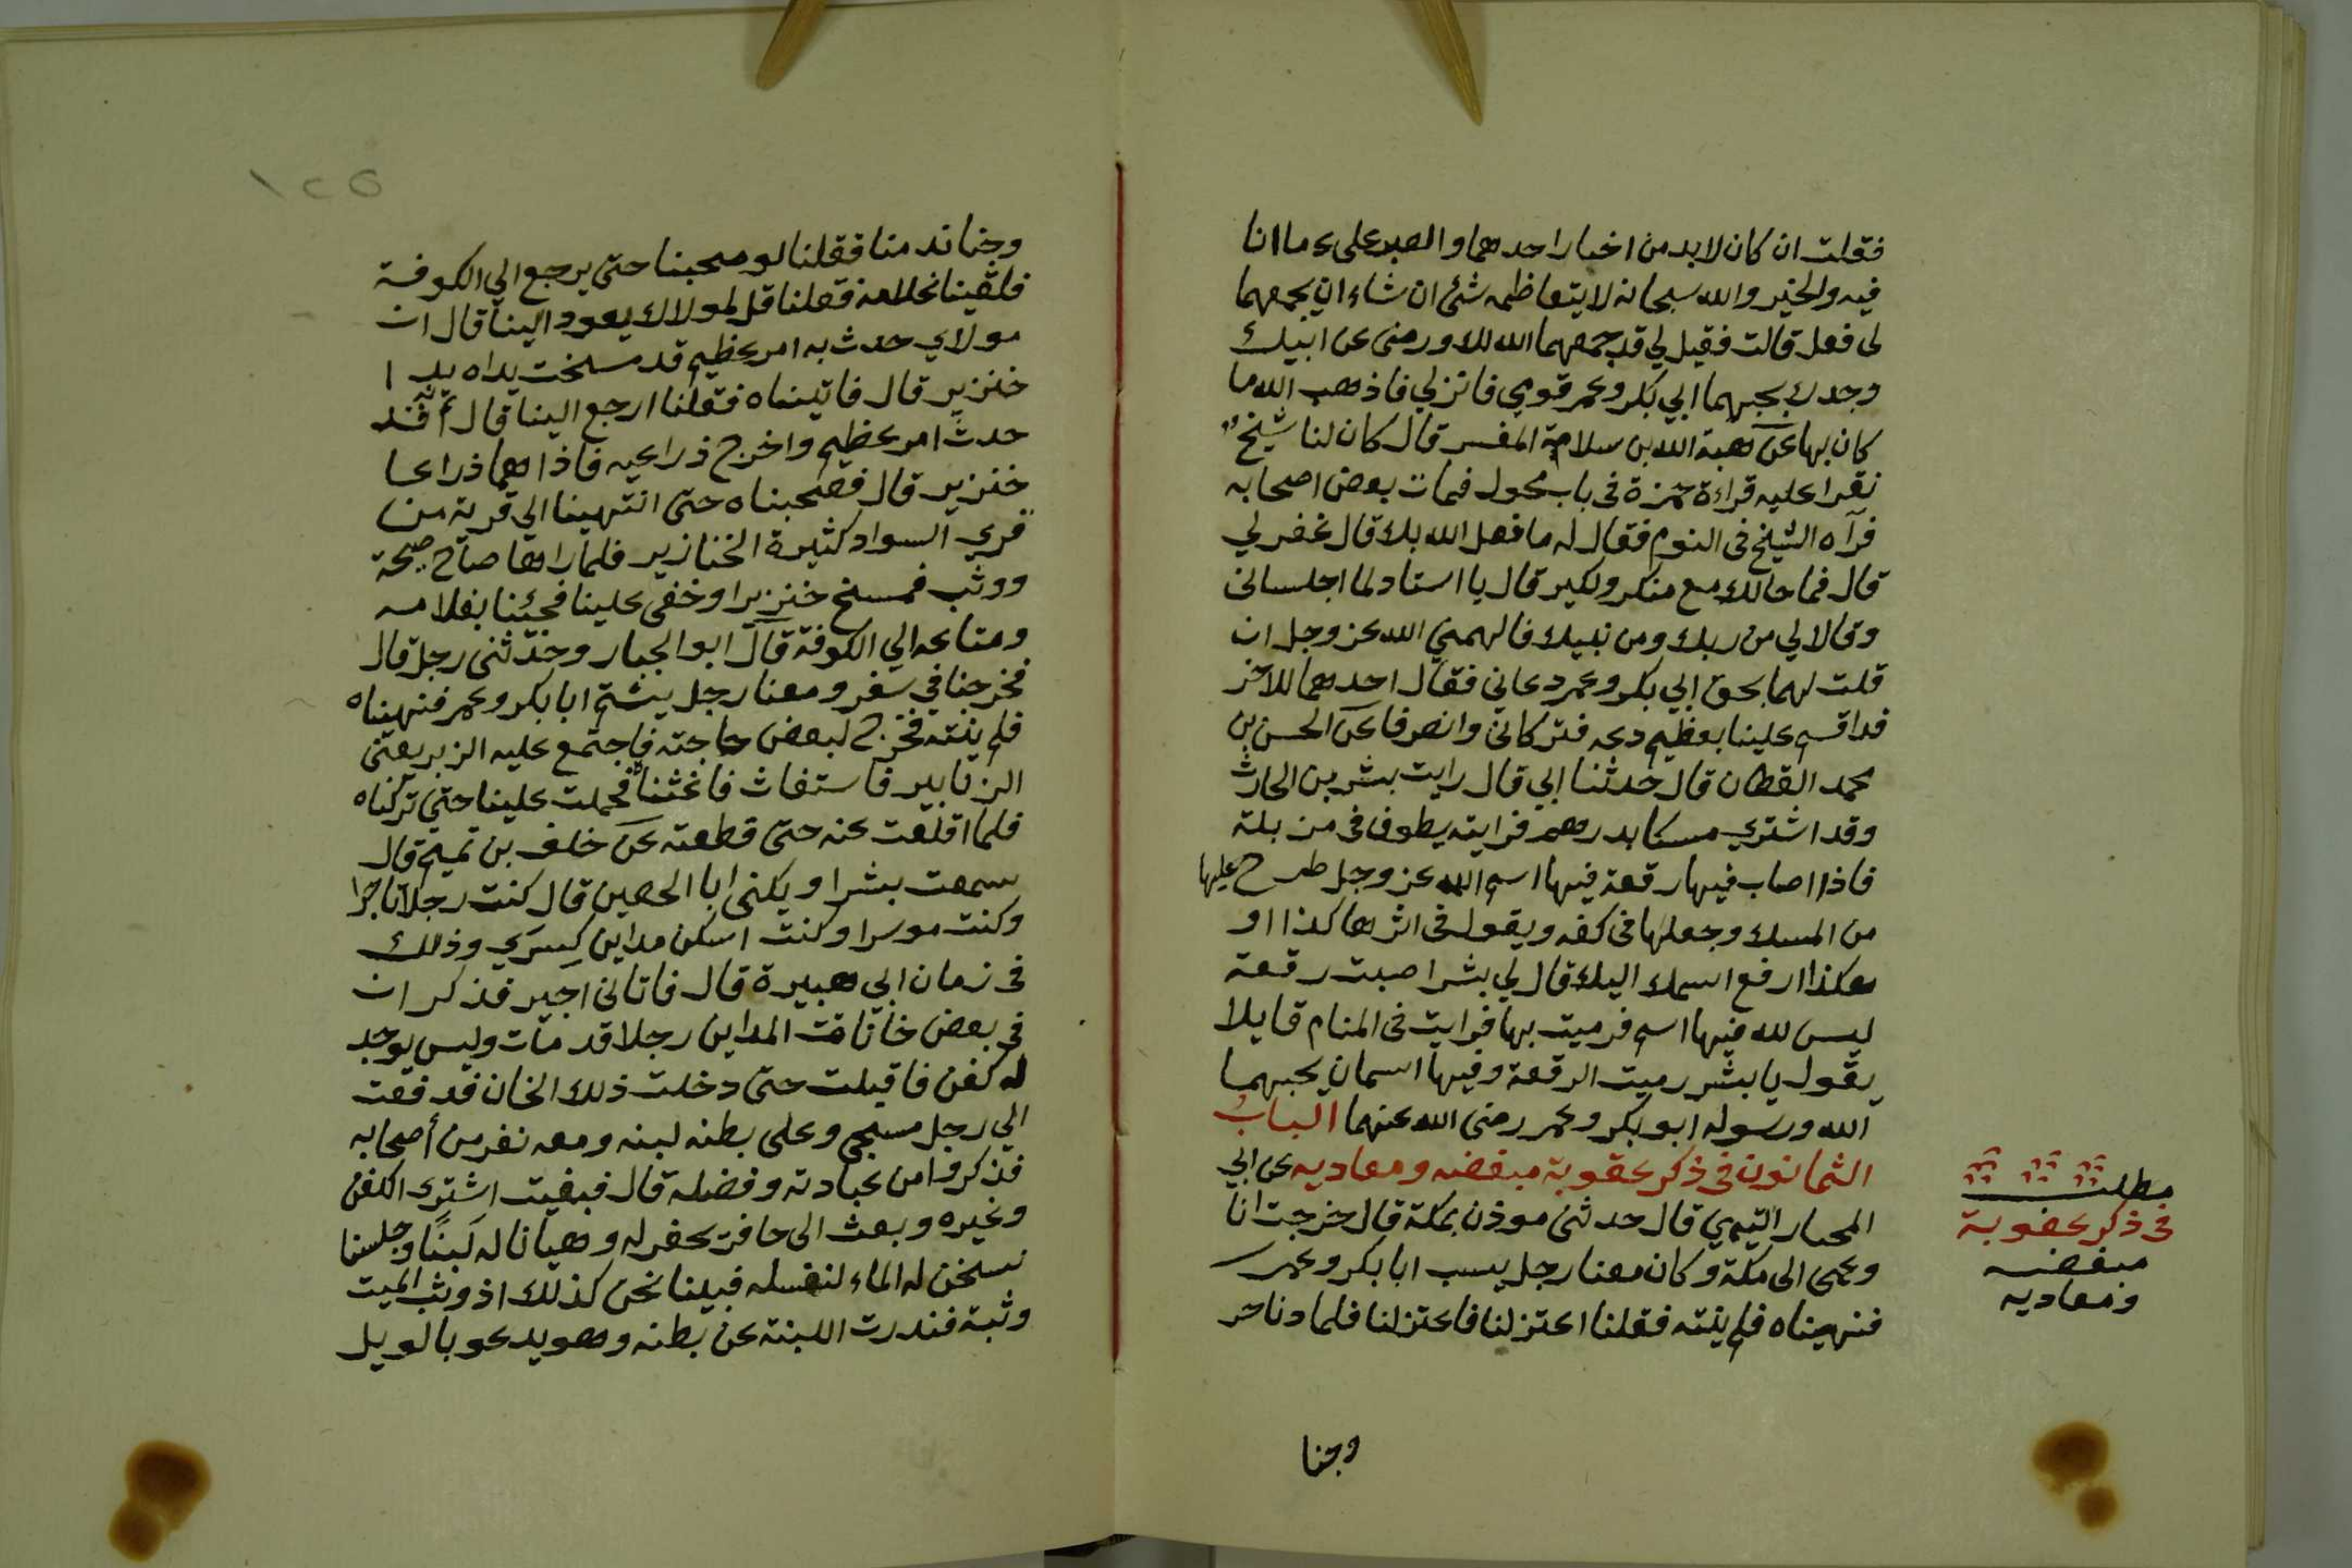 فقلت ان كان لابد من اختيار احدهما والصبر على ما انا
فيه والخير والله سبحانه لا يتعاظمه شئ ان شاء ان يجمعهما
لى فعل قالت فقيل لي قد جمعهما الله لك ورضى عن ابيك
وجدك بحبهما ابي بكر وعمر قومي فانزلي فاذهب الله ما
كان بها عن هبة الله بن سلامة المفسر قال كان لنا شيخ
نقرا عليه قراءة حمزة فى باب محول فمات بعض اصحابه
فرآه الشيخ فى النوم فقال له ما فعل الله بك قال غفر لي
قال فما حالك مع منكر ونكير قال يا استاد لما اجلسانى
وقالا لي من ربك ومن نبيك فالهمني الله عز وجل ان
قلت لهما بحق ابي بكر وعمر دعاني فقال احدهما للآخر
قد اقسم علينا بعظيم دعه فتركانى وانصرفا عن الحسن بن
محمد القطان قال حدثنا ابي قال رايت بشر بن الحارث
وقد اشتري مسكا بدرهم فرايته يطوف فى مزبلة
فاذا اصاب فيها رقعة فيها اسم الله عز وجل طرح عليها
من المسك وجعلها فى كفه ويقول فى اثرها كذا او
هكذا ارفع اسمك اليك قال لي بشر اصبت رقعة
ليس لله فيها اسم فرميت بها فرايت فى المنام قايلا
يقول يا بشر رميت الرقعة وفيها اسمان يحبهما
الله ورسوله ابو بكر وعمر رضى الله عنهما الباب
الثمانون فى ذكر عقوبة مبغضه ومعاديه عن ابي
المحيار التيمي قال حدثنى موذن بمكة قال خرجت انا
وعمى الى مكة وكان معنا رجل يسب ابا بكر وعمر
فنهيناه فلم ينته فقلنا اعتزلنا فاعتزلنا فلما دنا خر
وجنا
مطلب
فى ذكر عقوبة
مبغضه
ومعاديه
١٢٥
وجنا ندمنا فقلنا لو صحبنا حتى يرجع الي الكوفة
فلقينا غلامه فقلنا قل لمولاك يعود الينا قال ان
مولاي حدث به امر عظيم قد مسخت يداه يدا
خنزير قال فاتيناه فقلنا ارجع الينا قال انه قد
حدث امر عظيم واخرج ذراعيه فاذا هما ذراعا
خنزير قال فصحبناه حتى انتهينا الى قرية من
قري السواد كثيرة الخنازير فلما راها صاح صيحة
ووثب فمسخ خنزيرا وخفى علينا فجئنا بغلامه
ومتاعه الي الكوفة قال ابو الجبار وحدثنى رجل قال
خرجنا في سفر ومعنا رجل يشتم ابا بكر وعمر فنهيناه
فلم ينته فخرج لبعض حاجته فاجتمع عليه الزبر يعنى
الزنابير فاستغاث فاغثنا فحملت علينا حتى تركناه
فلما اقلعت عنه حتى قطعته عن خلف بن تميم قال
سمعت بشرا ويكنى ابا الحصين قال كنت رجلا تاجرا
وكنت موسرا وكنت اسكن مداين كسري وذلك
فى زمان ابي هبيرة قال فاتانى اجير فذكر ان
في بعض خانات المداين رجلا قد مات وليس يوجد
له كفن فاقبلت حتى دخلت ذلك الخان فدفعت
الي رجل مسجي وعلى بطنه لبنه ومعه نفر من أصحابه
فذكروا من عبادته وفضله قال فبعثت اشترى الكفن
وغيره وبعث الى حافر يحفر له وهيانا له لبنًا وجلسنا
نسخن له الماء لنغسله فبينا نحن كذلك اذ وثب الميت
وثبة فندرت اللبنة عن بطنه وهو يدعو بالويل